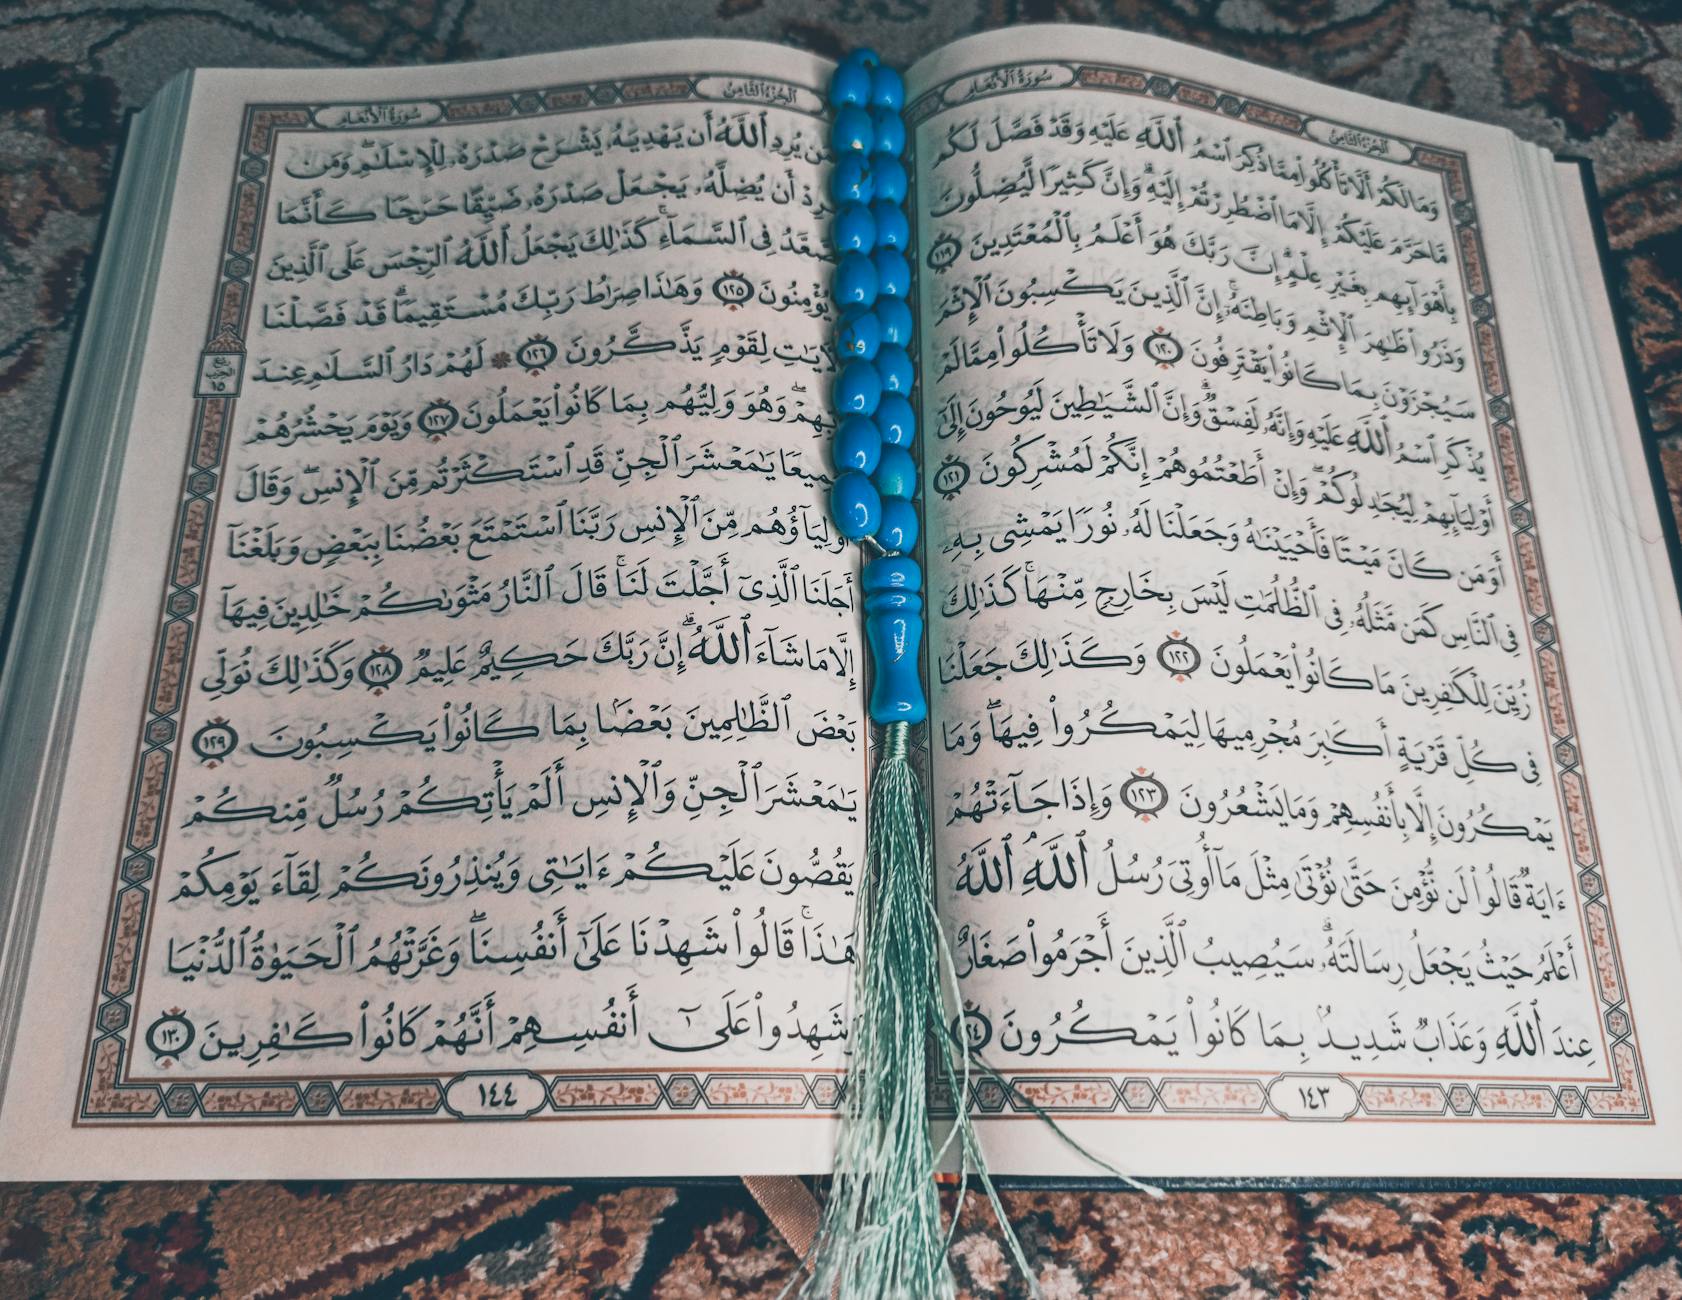 سُورَةُ الأَنْعَام
الجُزْءُ الثَّامِنُ
وَمَا لَكُمْ أَلَّا تَأْكُلُوا۟ مِمَّا ذُكِرَ ٱسْمُ ٱللَّهِ عَلَيْهِ وَقَدْ فَصَّلَ لَكُم
مَّا حَرَّمَ عَلَيْكُمْ إِلَّا مَا ٱضْطُرِرْتُمْ إِلَيْهِ ۗ وَإِنَّ كَثِيرًا لَّيُضِلُّونَ
بِأَهْوَآئِهِم بِغَيْرِ عِلْمٍ ۗ إِنَّ رَبَّكَ هُوَ أَعْلَمُ بِٱلْمُعْتَدِينَ ١١٩
وَذَرُوا۟ ظَٰهِرَ ٱلْإِثْمِ وَبَاطِنَهُۥٓ ۚ إِنَّ ٱلَّذِينَ يَكْسِبُونَ ٱلْإِثْمَ
سَيُجْزَوْنَ بِمَا كَانُوا۟ يَقْتَرِفُونَ ١٢٠ وَلَا تَأْكُلُوا۟ مِمَّا لَمْ
يُذْكَرِ ٱسْمُ ٱللَّهِ عَلَيْهِ وَإِنَّهُۥ لَفِسْقٌ ۗ وَإِنَّ ٱلشَّيَٰطِينَ لَيُوحُونَ إِلَىٰٓ
أَوْلِيَآئِهِمْ لِيُجَٰدِلُوكُمْ ۖ وَإِنْ أَطَعْتُمُوهُمْ إِنَّكُمْ لَمُشْرِكُونَ ١٢١
أَوَمَن كَانَ مَيْتًا فَأَحْيَيْنَٰهُ وَجَعَلْنَا لَهُۥ نُورًا يَمْشِى بِهِۦ
فِى ٱلنَّاسِ كَمَن مَّثَلُهُۥ فِى ٱلظُّلُمَٰتِ لَيْسَ بِخَارِجٍ مِّنْهَا ۚ كَذَٰلِكَ
زُيِّنَ لِلْكَٰفِرِينَ مَا كَانُوا۟ يَعْمَلُونَ ١٢٢ وَكَذَٰلِكَ جَعَلْنَا
فِى كُلِّ قَرْيَةٍ أَكَٰبِرَ مُجْرِمِيهَا لِيَمْكُرُوا۟ فِيهَا ۖ وَمَا
يَمْكُرُونَ إِلَّا بِأَنفُسِهِمْ وَمَا يَشْعُرُونَ ١٢٣ وَإِذَا جَآءَتْهُمْ
ءَايَةٌ قَالُوا۟ لَن نُّؤْمِنَ حَتَّىٰ نُؤْتَىٰ مِثْلَ مَآ أُوتِىَ رُسُلُ ٱللَّهِ ۘ ٱللَّهُ
أَعْلَمُ حَيْثُ يَجْعَلُ رِسَالَتَهُۥ ۗ سَيُصِيبُ ٱلَّذِينَ أَجْرَمُوا۟ صَغَارٌ
عِندَ ٱللَّهِ وَعَذَابٌ شَدِيدٌۢ بِمَا كَانُوا۟ يَمْكُرُونَ
١٤٣
الجُزْءُ الثَّامِنُ
سُورَةُ الأَنْعَام
يُرِدِ ٱللَّهُ أَن يَهْدِيَهُۥ يَشْرَحْ صَدْرَهُۥ لِلْإِسْلَٰمِ ۖ وَمَن
أَن يُضِلَّهُۥ يَجْعَلْ صَدْرَهُۥ ضَيِّقًا حَرَجًا كَأَنَّمَا
فِى ٱلسَّمَآءِ ۚ كَذَٰلِكَ يَجْعَلُ ٱللَّهُ ٱلرِّجْسَ عَلَى ٱلَّذِينَ
يُؤْمِنُونَ ١٢٥ وَهَٰذَا صِرَٰطُ رَبِّكَ مُسْتَقِيمًا ۗ قَدْ فَصَّلْنَا
لِقَوْمٍ يَذَّكَّرُونَ ١٢٦ ۞ لَهُمْ دَارُ ٱلسَّلَٰمِ عِندَ
وَهُوَ وَلِيُّهُم بِمَا كَانُوا۟ يَعْمَلُونَ ١٢٧ وَيَوْمَ يَحْشُرُهُمْ
يَٰمَعْشَرَ ٱلْجِنِّ قَدِ ٱسْتَكْثَرْتُم مِّنَ ٱلْإِنسِ ۖ وَقَالَ
أَوْلِيَآؤُهُم مِّنَ ٱلْإِنسِ رَبَّنَا ٱسْتَمْتَعَ بَعْضُنَا بِبَعْضٍ وَبَلَغْنَآ
أَجَلَنَا ٱلَّذِىٓ أَجَّلْتَ لَنَا ۚ قَالَ ٱلنَّارُ مَثْوَىٰكُمْ خَٰلِدِينَ فِيهَآ
إِلَّا مَا شَآءَ ٱللَّهُ ۗ إِنَّ رَبَّكَ حَكِيمٌ عَلِيمٌ ١٢٨ وَكَذَٰلِكَ نُوَلِّى
بَعْضَ ٱلظَّٰلِمِينَ بَعْضًۢا بِمَا كَانُوا۟ يَكْسِبُونَ ١٢٩
يَٰمَعْشَرَ ٱلْجِنِّ وَٱلْإِنسِ أَلَمْ يَأْتِكُمْ رُسُلٌ مِّنكُمْ
يَقُصُّونَ عَلَيْكُمْ ءَايَٰتِى وَيُنذِرُونَكُمْ لِقَآءَ يَوْمِكُمْ
هَٰذَا ۚ قَالُوا۟ شَهِدْنَا عَلَىٰٓ أَنفُسِنَا ۖ وَغَرَّتْهُمُ ٱلْحَيَوٰةُ ٱلدُّنْيَا
وَشَهِدُوا۟ عَلَىٰٓ أَنفُسِهِمْ أَنَّهُمْ كَانُوا۟ كَٰفِرِينَ ١٣٠
ربع
الحزب
١٥
١٤٤